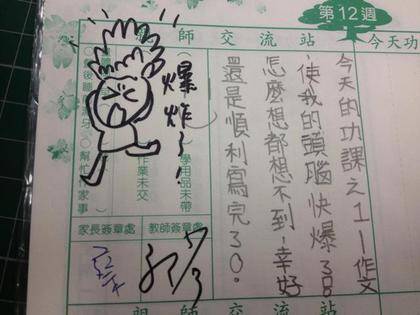 第12週
師交流站
今天功
今天的功課之1—作文
使我的頭腦快爆3
怎麼想都想不到,幸好
還是順利寫完3。
爆炸了!
學用品未帶
作業未交
幫忙作家事
家長簽章處
教師簽章處
5/3
師交流站